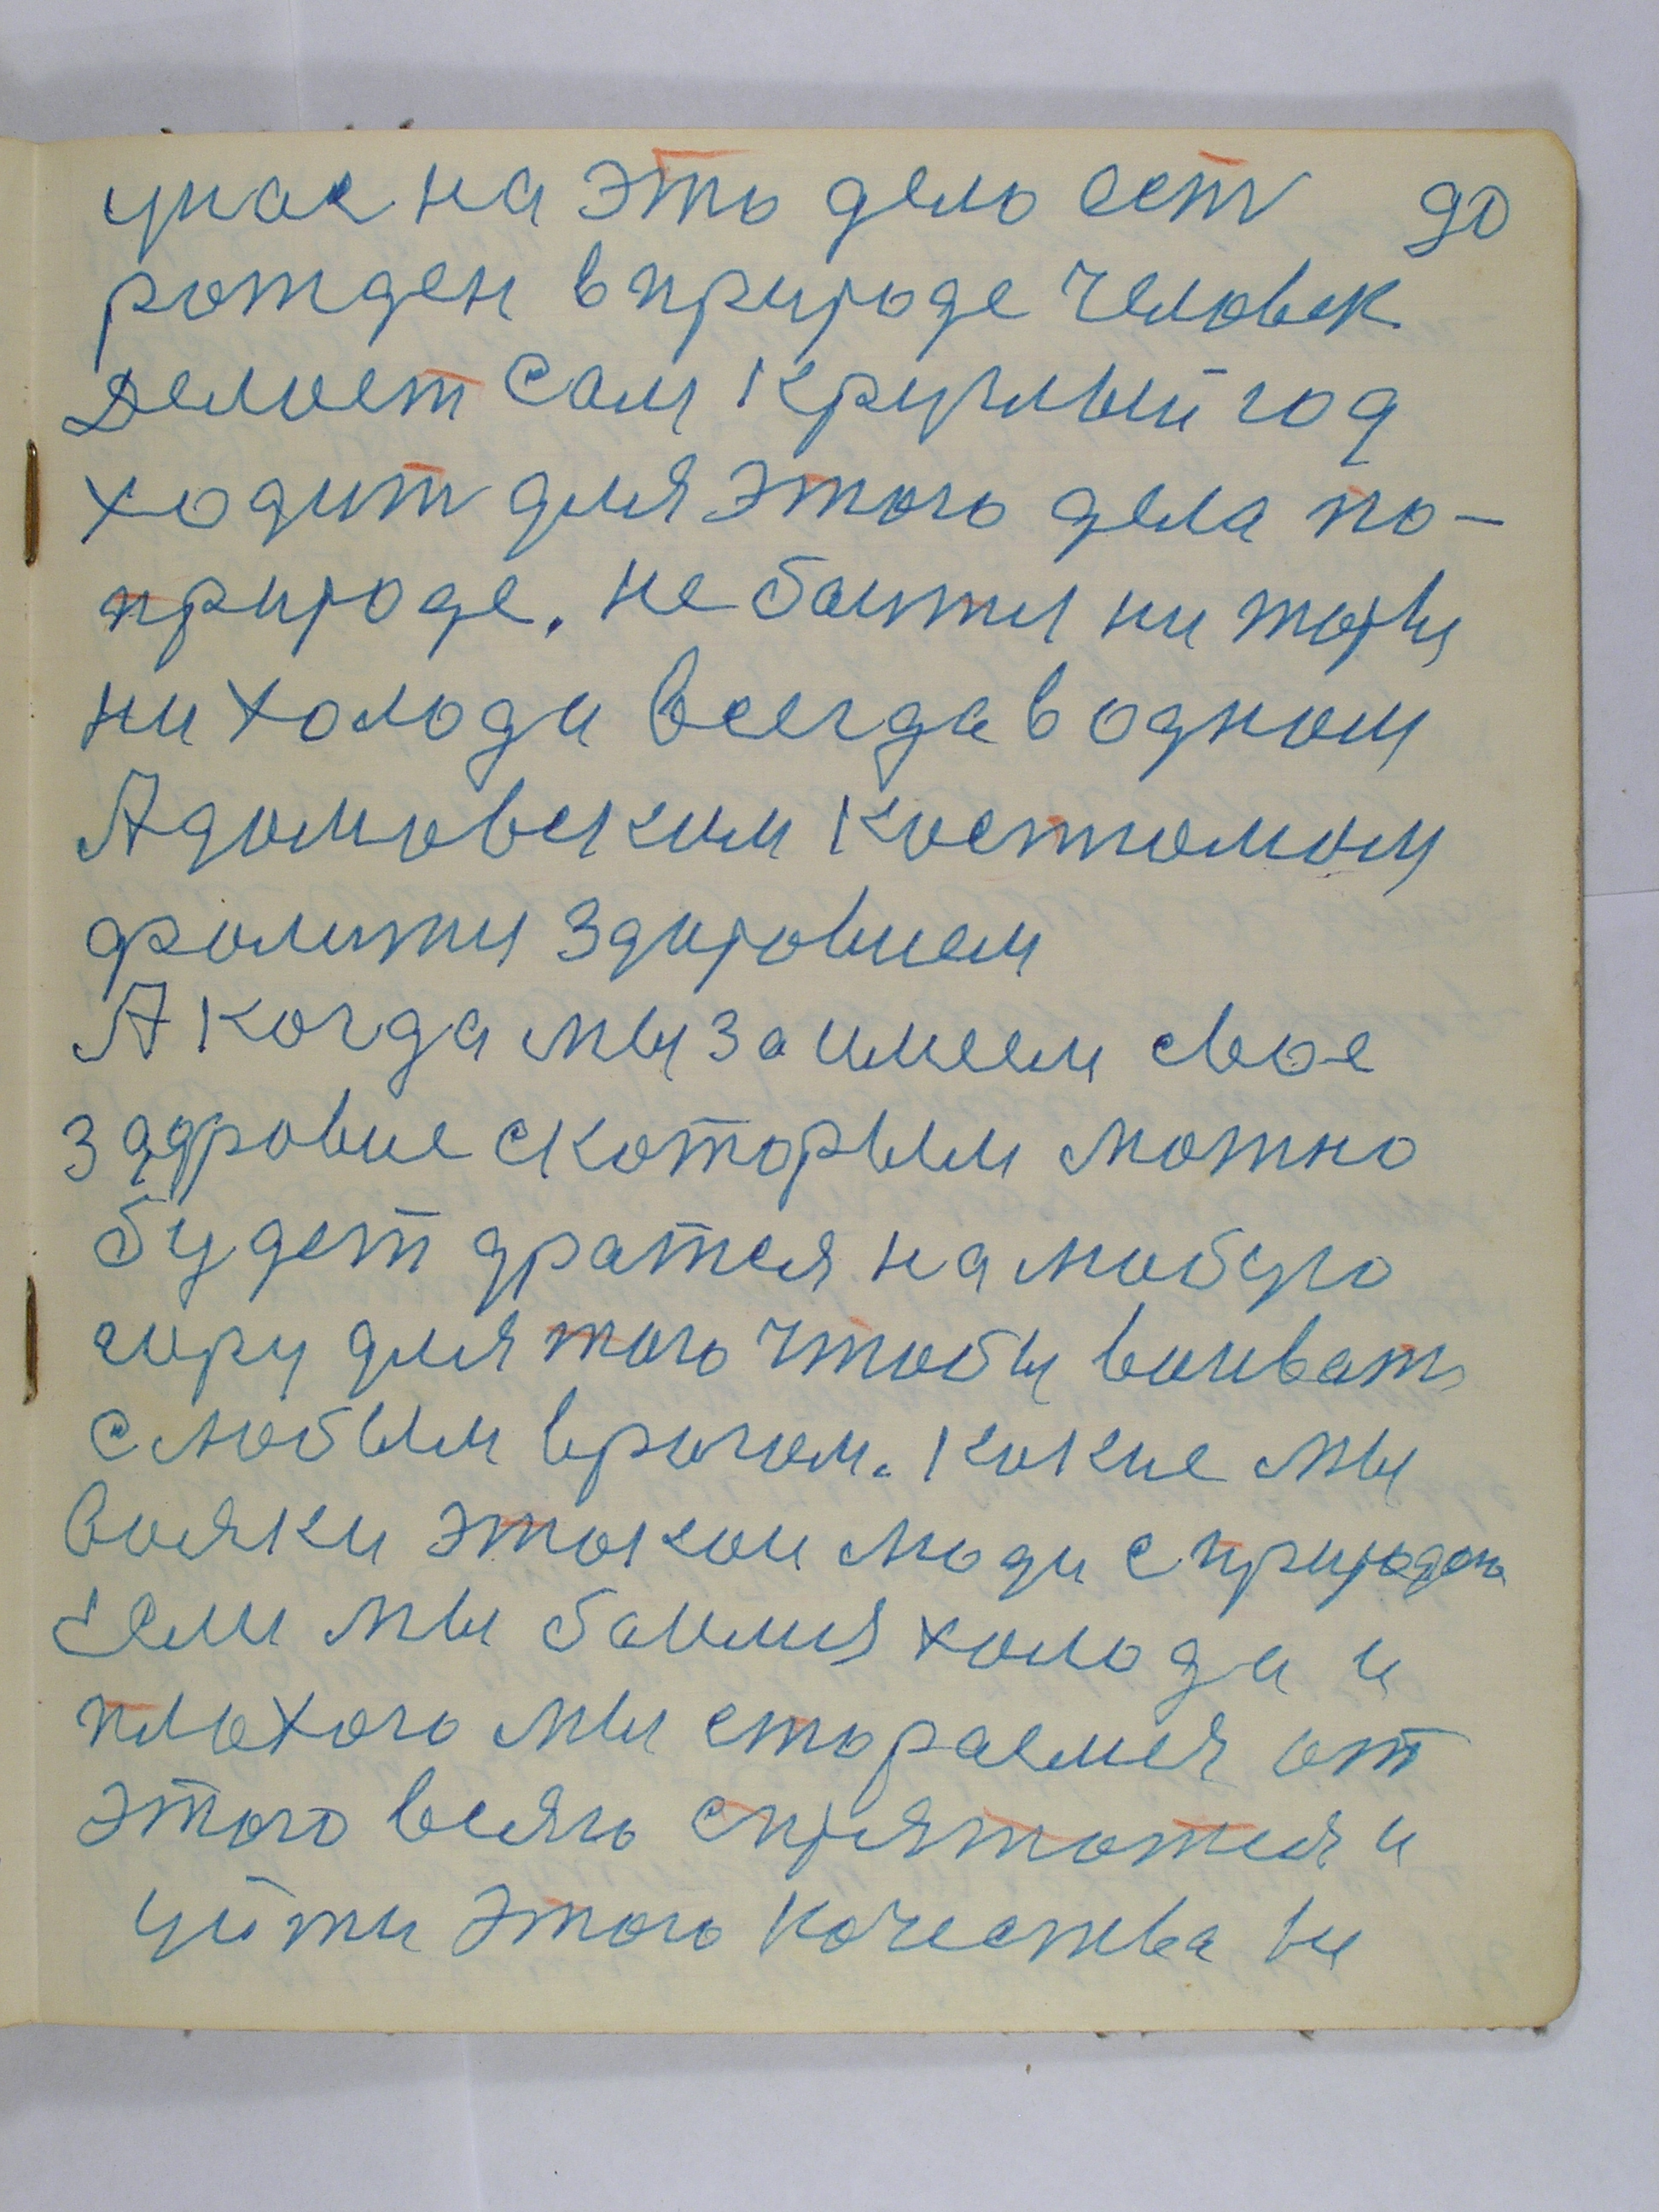 унас на это дело ест 90
рожден в природе человек
Делает сам круглый год
ходит для этого дела по-
природе. не баится ни жары
ни холода всегда в одном
Адамовским костюмом
фалится здоровием
А когда мы заимеем свое
здоровие скоторым можно
будет дратся на любую
гору для того чтобы воиват
с любым врагом. какие мы
вояки этакои люди с природои
Если мы баимся холода и
плохого мы стараемся от
этого всяго спрятатся и
уйти этого качества